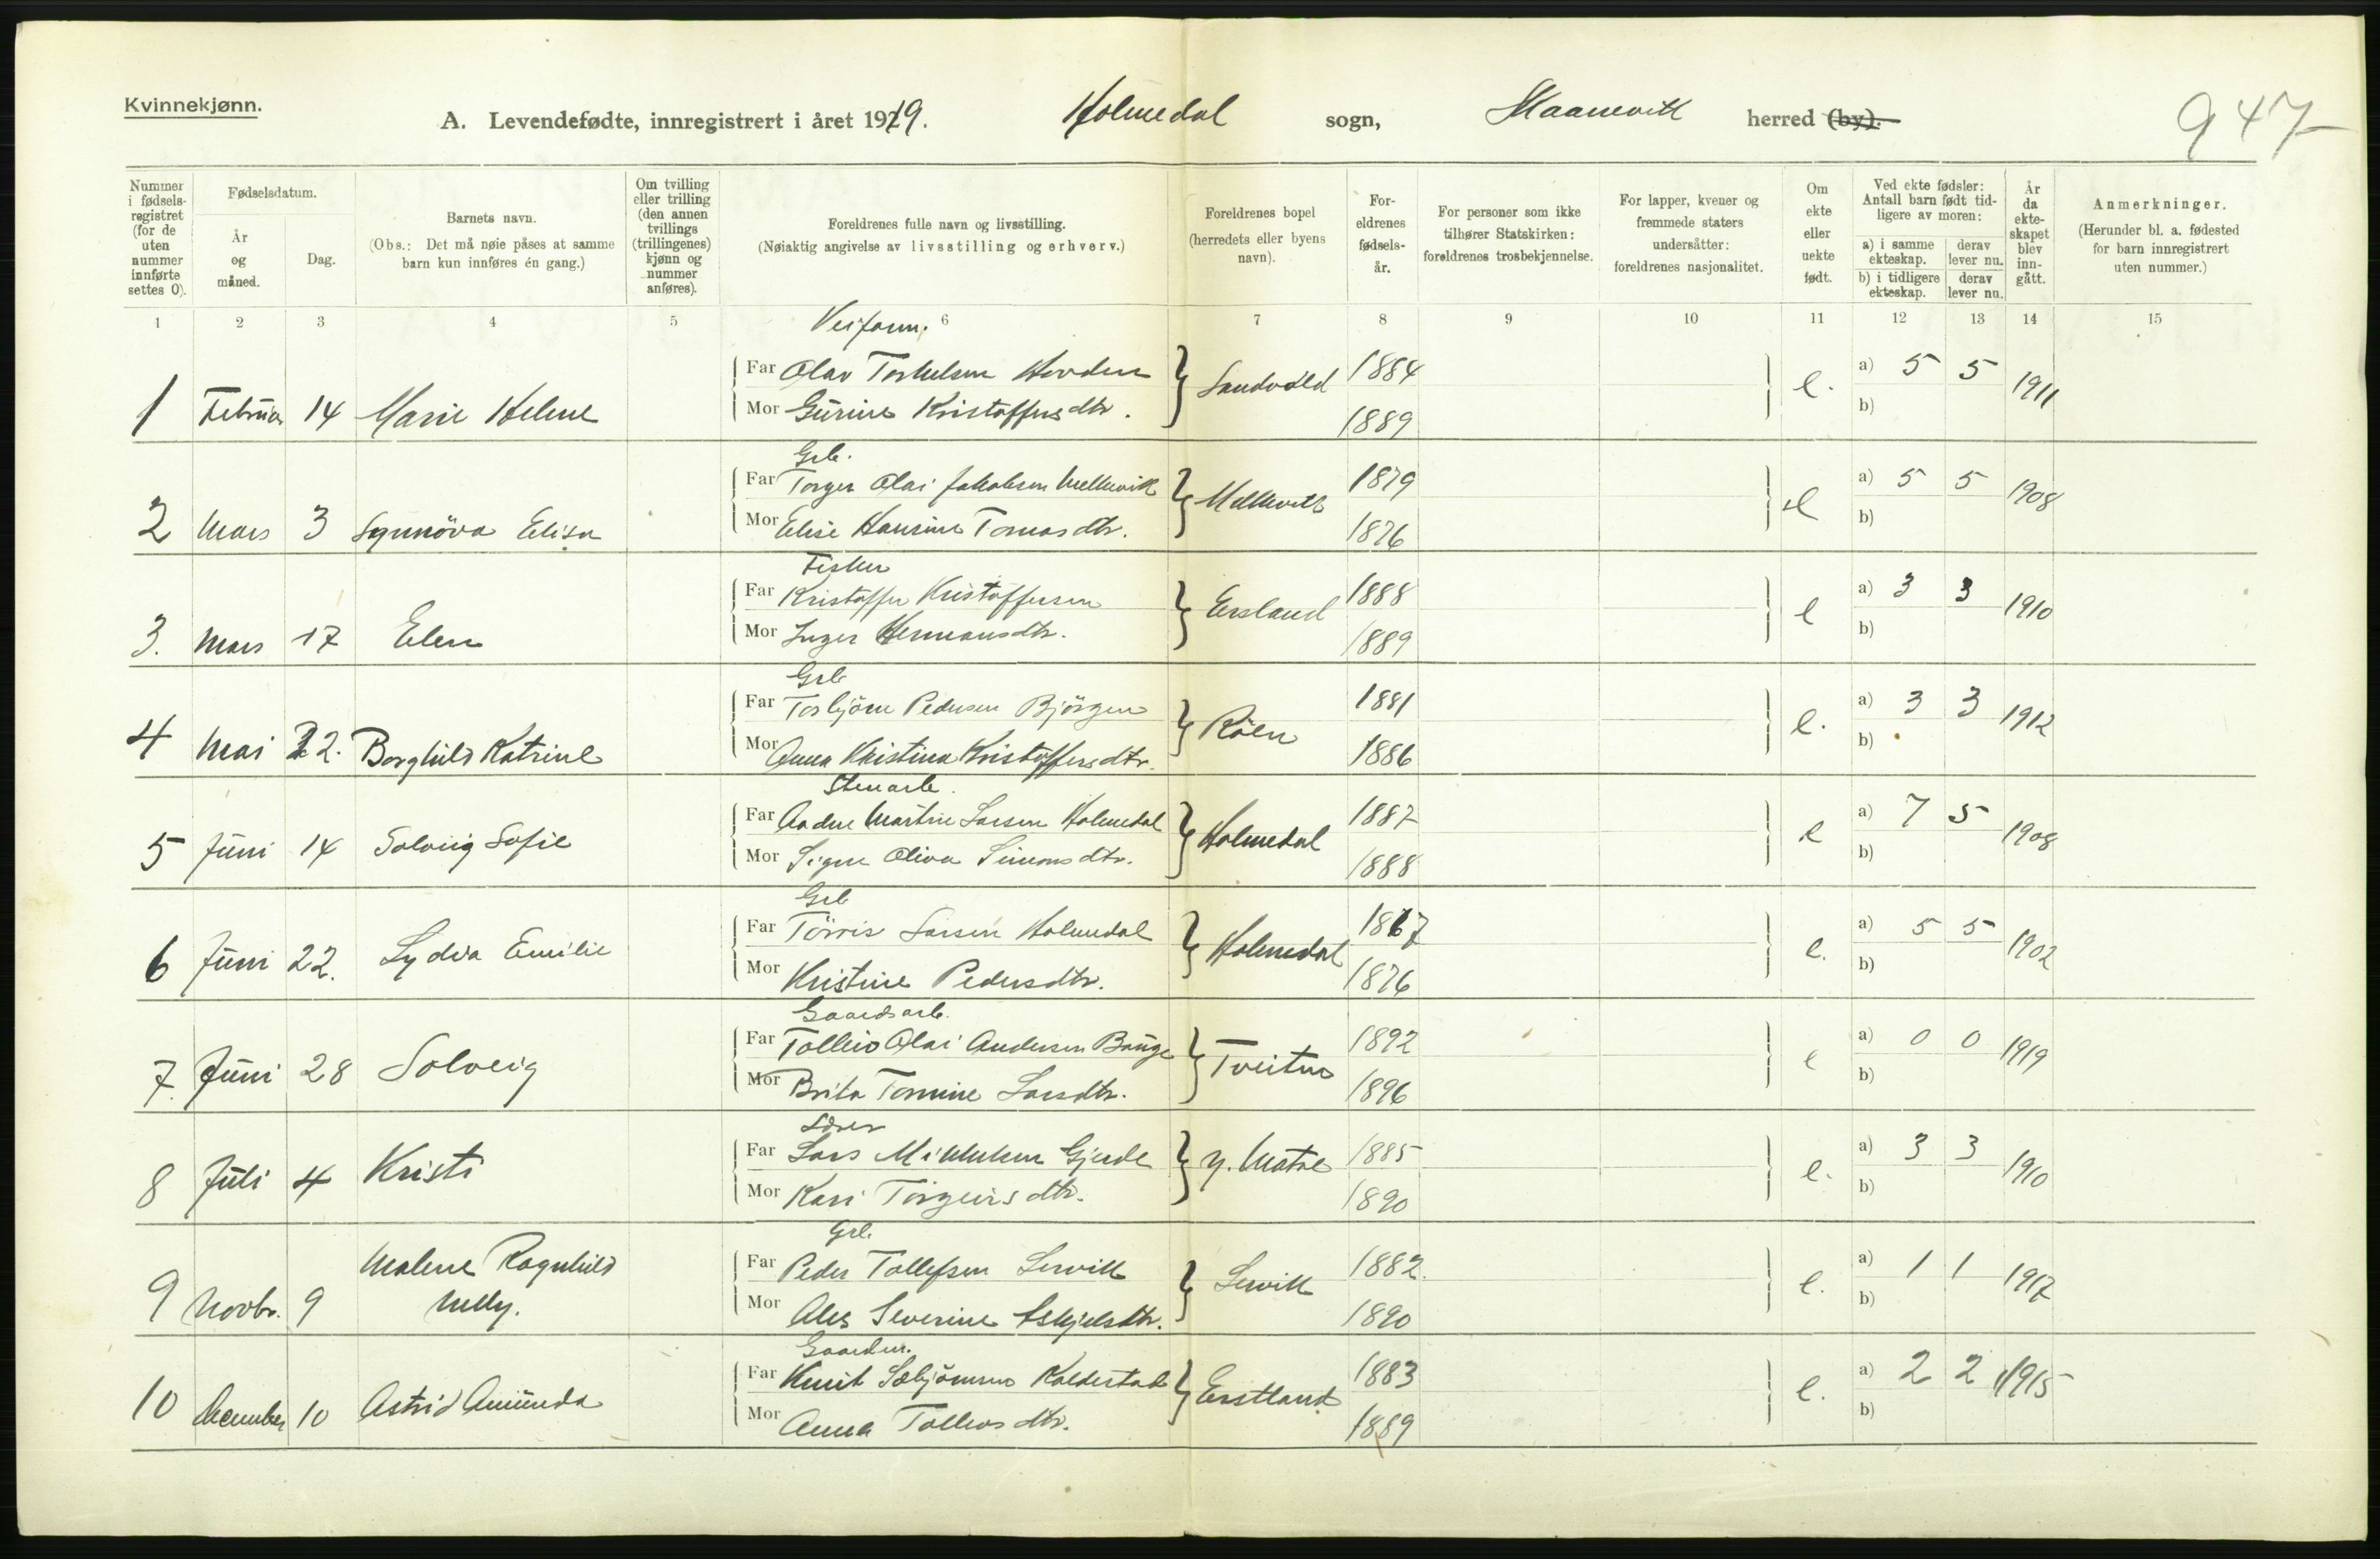 Kvinnekjønn.
A. Levendefødte, innregistrert i året 1919. Holmedal sogn, Skaanevik herred (by).
947
Nummer i fødselsregistret (for de uten nummer innførte settes 0).
Fødselsdatum.
År og måned.
Dag.
Barnets navn.
(Obs.: Det må nøie påses at samme barn kun innføres én gang.)
Om tvilling eller trilling (den annen tvillings (trillingenes) kjønn og nummer anføres).
Foreldrenes fulle navn og livsstilling.
(Nøiaktig angivelse av livsstilling og erhverv.)
Foreldrenes bopel (herredets eller byens navn).
Foreldrenes fødselsår.
For personer som ikke tilhører Statskirken: foreldrenes trosbekjennelse.
For lapper, kvener og fremmede staters undersåtter: foreldrenes nasjonalitet.
Om ekte eller uekte født.
Ved ekte fødsler: Antall barn født tidligere av moren:
a) i samme ekteskap. derav lever nu.
b) i tidligere ekteskap. derav lever nu.
År da ekteskapet blev inngått.
Anmerkninger.
(Herunder bl. a. fødested for barn innregistrert uten nummer.)
1 2 3 4 5 6 7 8 9 10 11 12 13 14 15
Veiform.
Far Olav Torkelsen Hovden 1884 a) 5 5
1 Februar 14 Marie Helene Sandvold e. 1911
Mor Gurine Kristoffersdtr. 1889 b)
Grb.
Far Torger Olai Jakobsen Melkevik 1879 a) 5 5
2 Mars 3 Synnöva Elisa Melkevik e 1908
Mor Elise Hansine Tomasdtr. 1876 b)
Fisker
Far Kristoffer Kristoffersen 1888 a) 3 3
3. Mars 17 Elen Ersland e 1910
Mor Inger Hermansdtr. 1889 b)
Grb
Far Torbjörn Pedersen Björgen 1881 a) 3 3
4 Mai 22. Borghild Katrine Röen e. 1912
Mor Anna Kristina Kristoffersdtr. 1886 b)
Stenarb.
Far Andne Martin Larsen Holmedal 1887 a) 7 5
5 Juni 14 Solveig Sofie Holmedal e 1908
Mor Signe Oliva Simonsdtr. 1888 b)
Grb
Far Törris Larsen Holmedal 1867 a) 5 5
6 Juni 22. Lydia Emilie Holmedal e. 1902
Mor Kristine Pedersdtr. 1876 b)
Gaardsarb.
Far Tolleiv Olai Andersen Bauge 1892 a) 0 0
7. Juni 28 Solveig Tveitnes e 1919
Mor Brita Tomine Larsdtr. 1896 b)
Lærer
Far Lars Mikkelsen Gjerde 1885 a) 3 3
8 Juli 4 Kristi y. Matre e. 1910
Mor Kari Torgeirsdtr. 1890 b)
Grb.
Far Peder Tollefsen Lervik 1882. a) 1 1
9 Novbr. 9 Malene Ragnhild Nelly. Lervik e. 1917
Mor Ales Severine Eskjelsdtr. 1890 b)
Gaardbr.
Far Knut Sæbjörnsen Kaldestad 1883 a) 2 2
10 December 10 Astrid Amunda Erstland e. 1915
Mor Anna Tolleivsdtr. 1889 b)